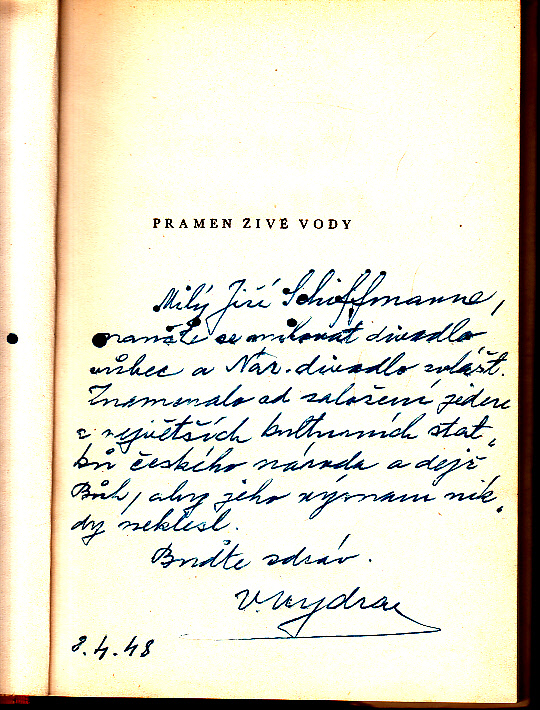 PRAMEN ŽIVÉ VODY
Milý Jiří Schoffmanne,
naučte se milovat divadlo
vůbec a Nár. divadlo zvlášť.
Znamenalo od založení jeden
z největších kulturních stat-
ků českého národa a dejž
Bůh, aby jeho význam nik-
dy neklesl.
Buďte zdráv.
V. Vydra
3.4.48